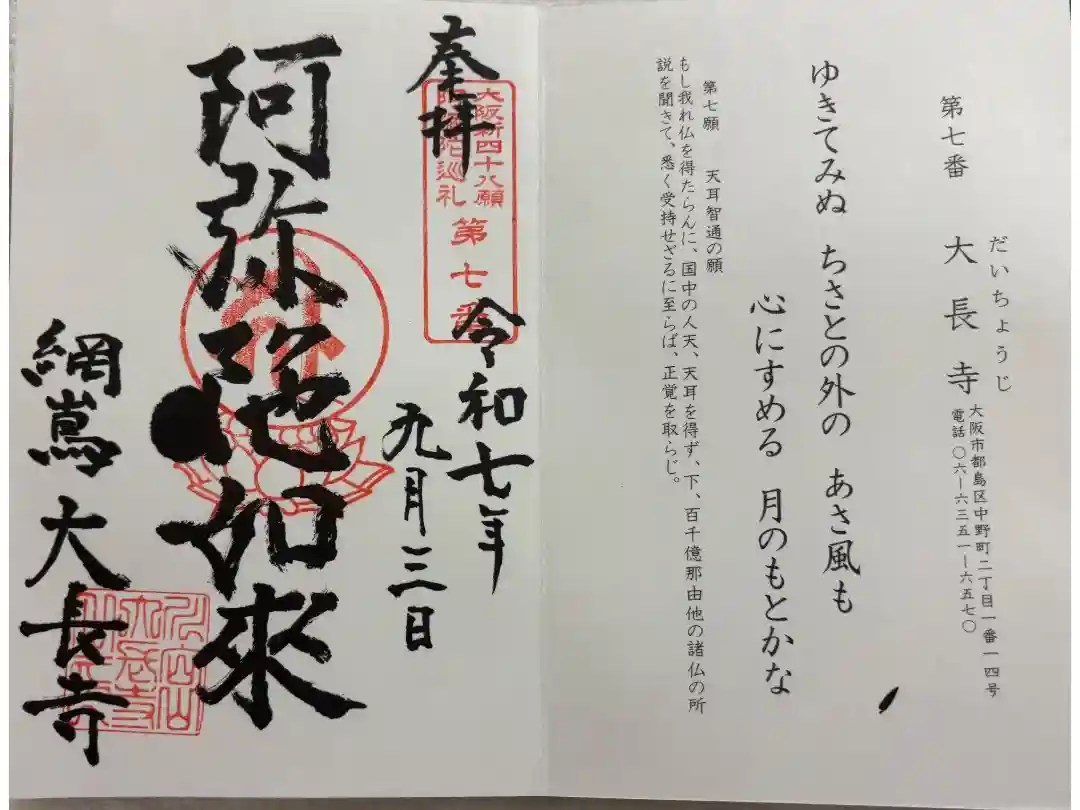 第七番 大長寺
だいちょうじ
大阪市都島区中野町二丁目一番一四号
電話 〇六ー六三五一ー六五七〇
ゆきてみぬ ちさとの外の あさ風も
心にすめる 月のもとかな
第七願 天耳智通の願
もし我れ仏を得たらんに、国中の人天、天耳を得ず、下、百千億那由他の諸仏の所
説を聞きて、悉く受持せざるに至らば、正覚を取らじ。
奉拝
大阪新四十八願
阿弥陀巡礼
第七番
令和七年
九月三日
阿弥陀如來
網嶌 大長寺